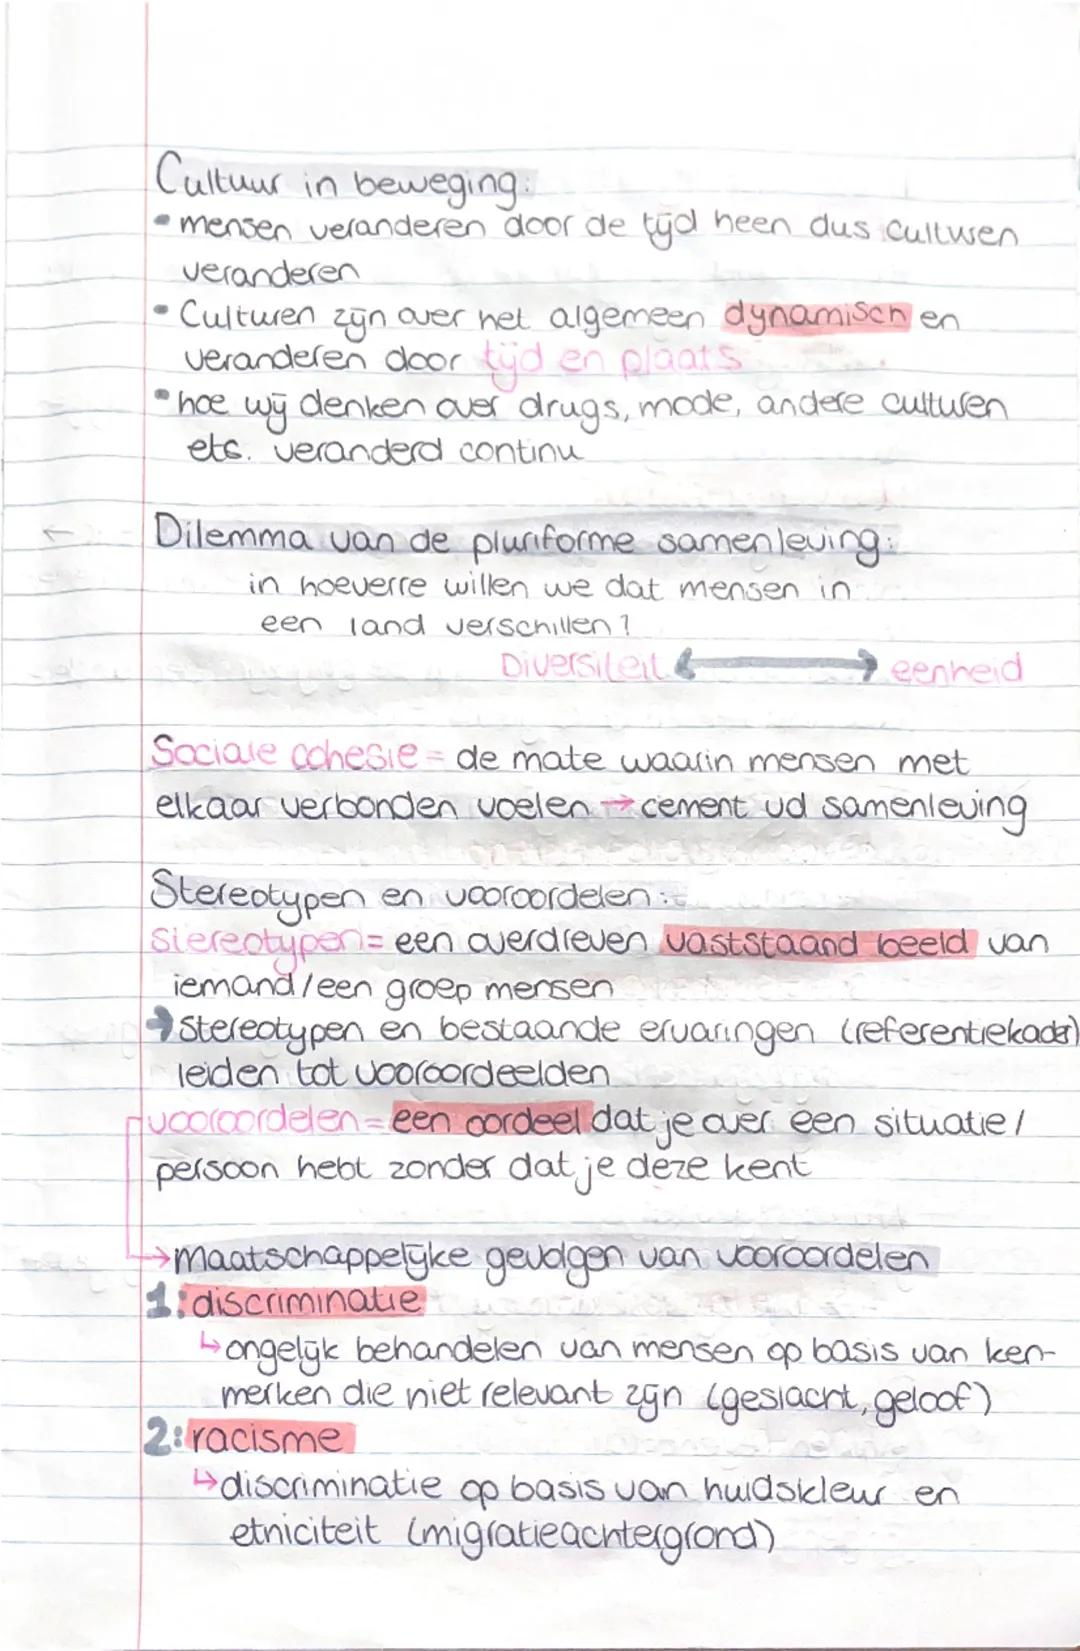 Cultuur in beweging:
• mensen veranderen door de tijd heen dus culturen
veranderen
• Culturen zijn over het algemeen dynamisch en
veranderen door tijd en plaats
• hoe wij denken over drugs, mode, andere culturen
ets. veranderd continu
Dilemma van de pluriforme samenleving:
in hoeverre willen we dat mensen in
een land verschillen?
Diversiteit ↔ eenheid
Sociale cohesie = de mate waarin mensen met
elkaar verbonden voelen → cement vd samenleving
Stereotypen en vooroordelen:
Stereotypen = een overdreven vaststaand beeld van
iemand/een groep mensen
→ Stereotypen en bestaande ervaringen (referentiekader)
leiden tot vooroordeelden
vooroordelen = een oordeel dat je over een situatie/
persoon hebt zonder dat je deze kent
→ Maatschappelijke gevolgen van vooroordelen
1: discriminatie
↳ ongelijk behandelen van mensen op basis van ken-
merken die niet relevant zijn (geslacht, geloof)
2: racisme
↳ discriminatie op basis van huidskleur en
etniciteit (migratieachtergrond)